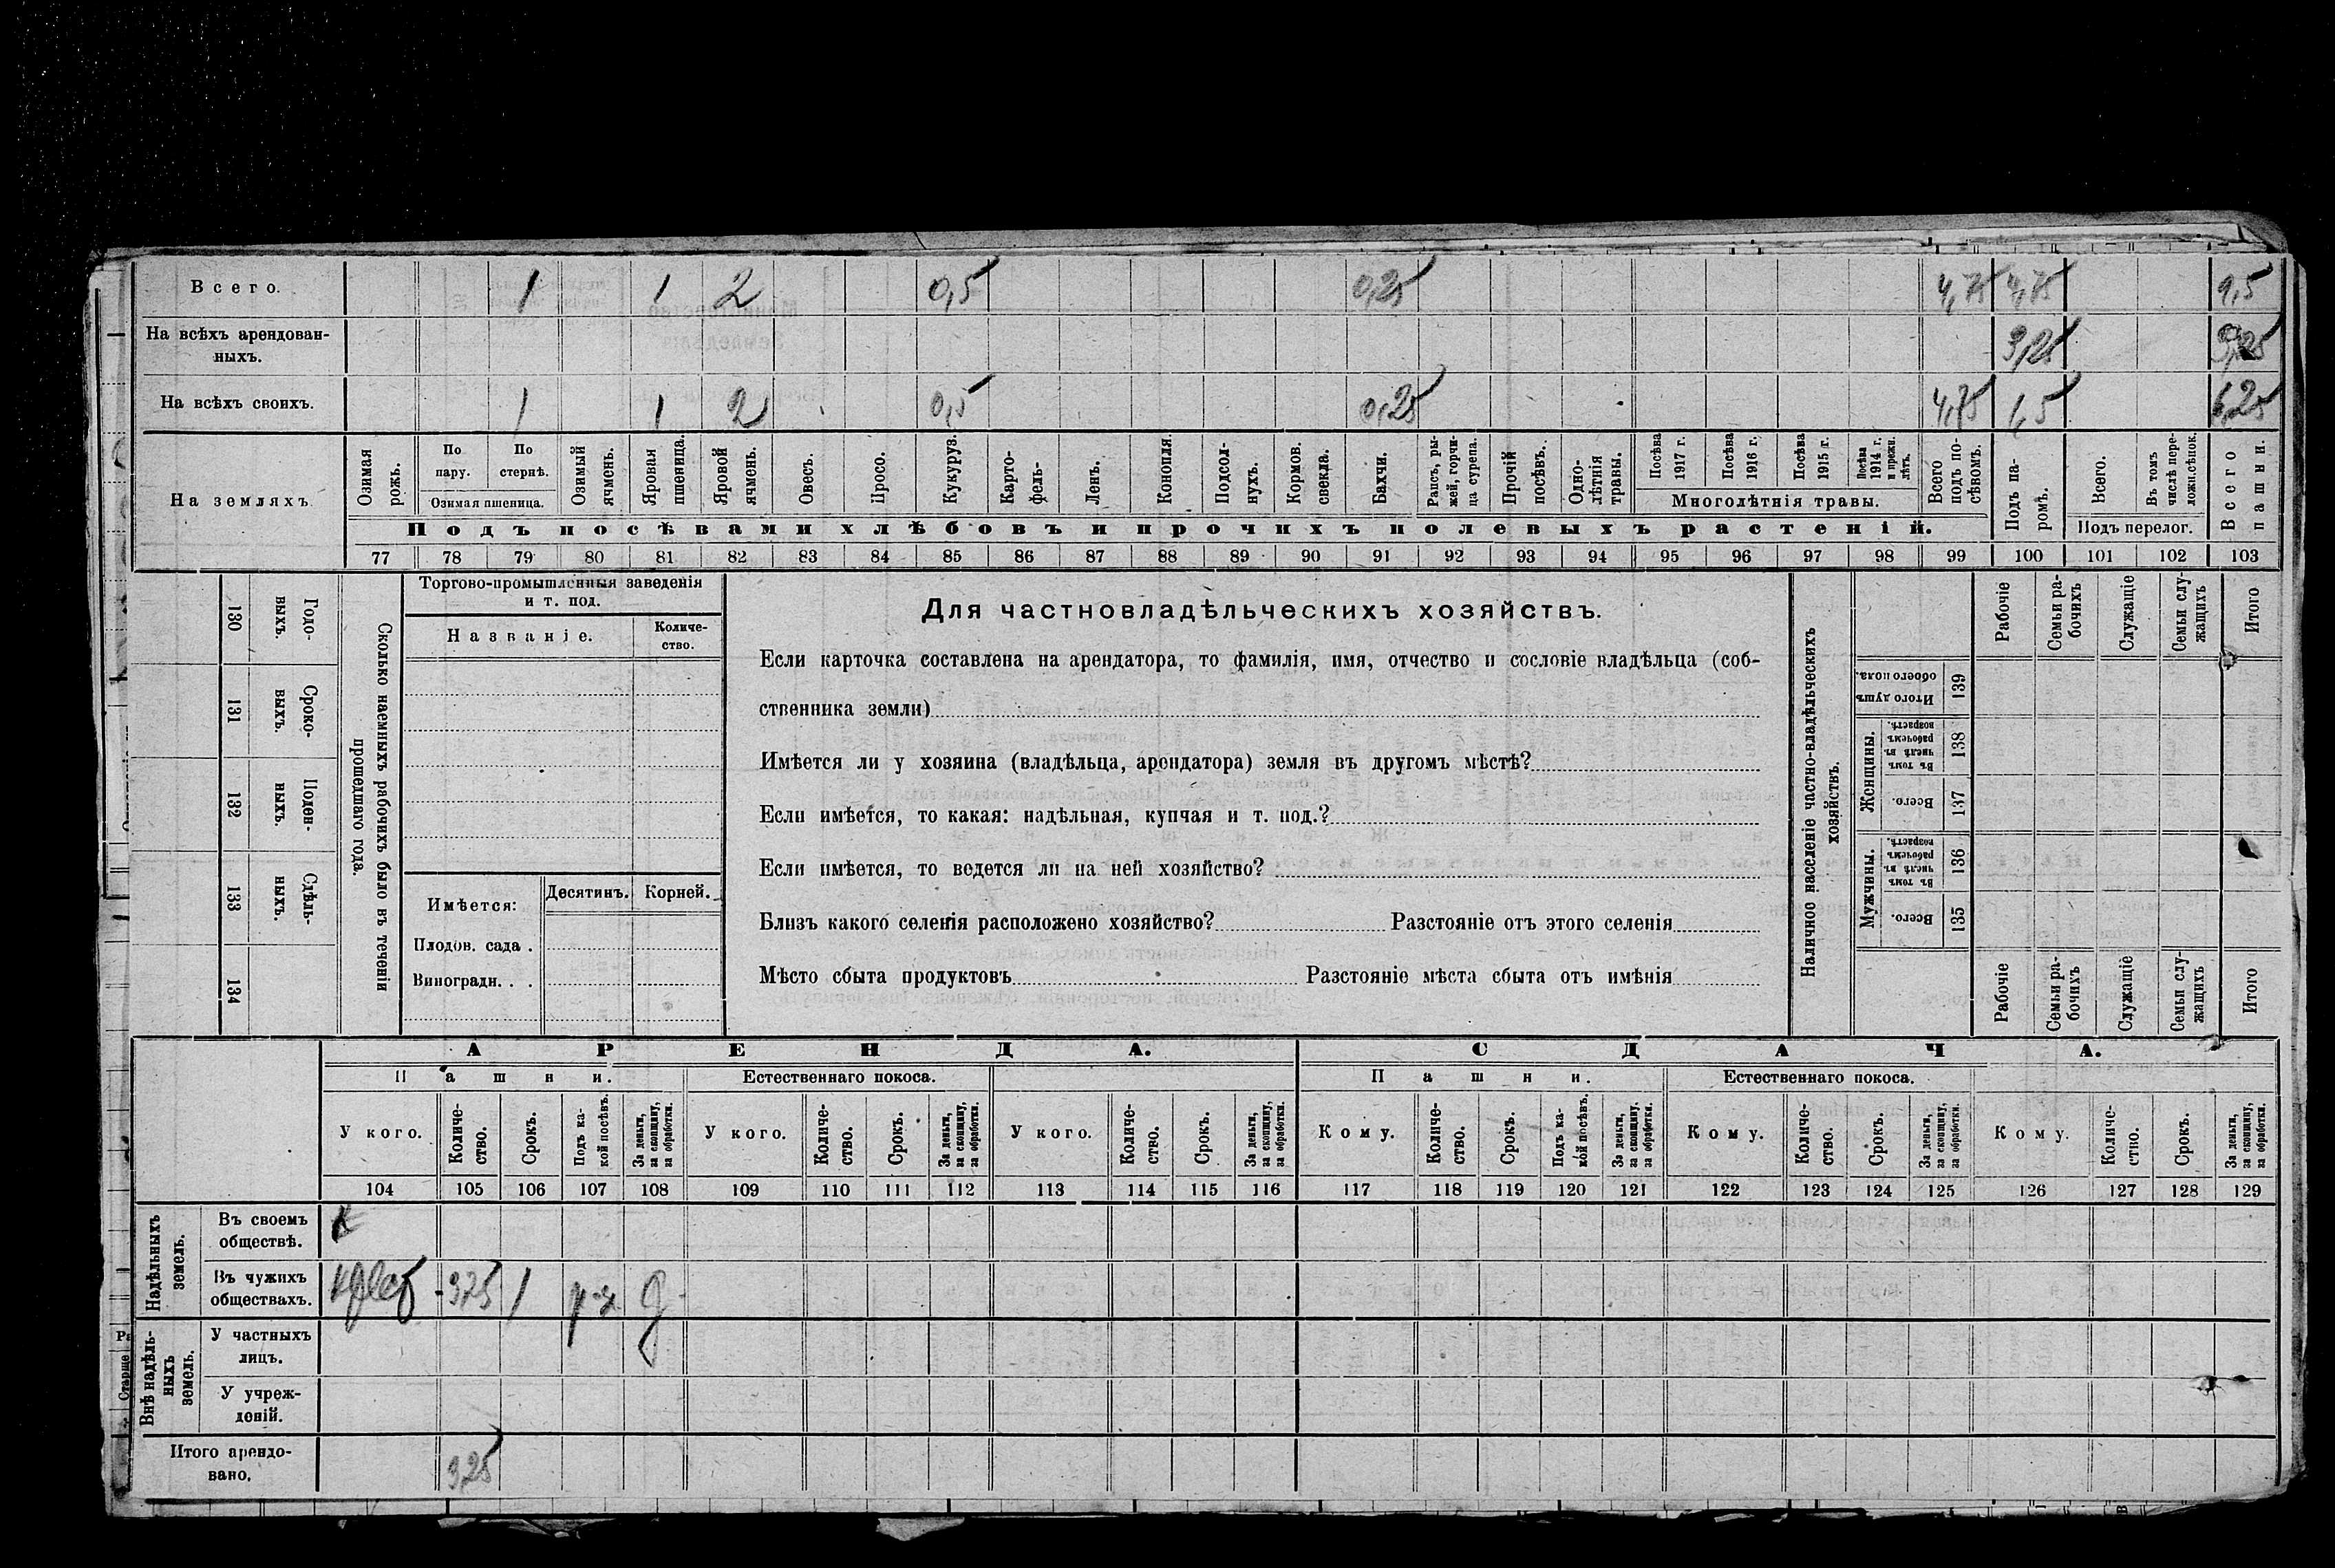 Всего. 1 1 2 0,5 0,25 4,75 4,75 9,5
На всѣхъ арендован-
ныхъ. 3,25 3,25
На всѣхъ своихъ. 1 1 2 0,5 0,25 4,75 1,5 6,25
На земляхъ.
Озимая рожь.
По пару.
По стернѣ.
Озимая пшеница.
Озимый ячмень.
Яровая пшеница.
Яровой ячмень.
Овесъ.
Просо.
Кукуруз.
Карто-
фель-
Ленъ.
Конопля.
Подсол-
нухъ.
Кормов. свекла.
Бахчи.
Рапсъ, ры-
жей, горчи-
ца сурепа.
Прочій посѣвъ.
Одно-
лѣтнія травы.
Посѣва 1917 г.
Посѣва 1916 г.
Посѣва 1915 г.
Посѣва 1914 г. и прежн. лѣтъ.
Многолѣтнія травы.
Всего подъ по-
сѣвомъ.
Подъ па-
ромъ.
Всего.
Въ томъ числѣ пере-
ложн.сѣнок.
Подъ перелог.
Всего пашни.
Подъ посѣвами хлѣбовъ и прочихъ полевыхъ растеній.
77 78 79 80 81 82 83 84 85 86 87 88 89 90 91 92 93 94 95 96 97 98 99 100 101 102 103
130 Годо-
выхъ.
131 Сроко-
выхъ.
132 Поден-
ныхъ.
133 Сдѣль-
ныхъ.
134
Сколько наемныхъ рабочихъ было въ теченіи
прошедшаго года.
Торгово-промышленныя заведенія
и т. под.
Названіе.
Количе-
ство.
Имѣется: Десятинъ. Корней.
Плодов. сада .
Виноградн. . .
Для частновладѣльческихъ хозяйствъ.
Если карточка составлена на арендатора, то фамилія, имя, отчество и сословіе владѣльца (соб-
ственника земли)
Имѣется ли у хозяина (владѣльца, арендатора) земля въ другомъ мѣстѣ?
Если имѣется, то какая: надѣльная, купчая и т. под.?
Если имѣется, то ведется ли на ней хозяйство?
Близъ какого селенія расположено хозяйство? Разстояніе отъ этого селенія
Мѣсто сбыта продуктовъ Разстояніе мѣста сбыта отъ имѣнія
Наличное населеніе частно-владѣльческихъ
хозяйствъ.
Рабочіе
Семьи ра-
бочихъ
Служащіе
Семьи слу-
жащихъ
Итого
Итого душъ обоего пола. 139
Женщины.
Въ томъ числѣ въ рабочемъ возрастѣ. 138
Всего. 137
Мужчины.
Въ томъ числѣ въ рабочемъ возрастѣ. 136
Всего. 135
Рабочіе
Семьи ра-
бочихъ
Служащіе
Семьи слу-
жащихъ
Итого
АРЕНДА. СДАЧА.
Пашни. Естественнаго покоса. Пашни. Естественнаго покоса.
У кого.
Количе-
ство.
Срокъ.
Подъ ка-
кой посѣвъ.
За деньги, за скопщину, за обработки.
У кого.
Количе-
ство.
Срокъ.
За деньги, за скопщину, за обработки.
У кого.
Количе-
ство.
Срокъ.
За деньги, за скопщину, за обработки.
Кому.
Количе-
ство.
Срокъ.
Подъ ка-
кой посѣвъ.
За деньги, за скопщину, за обработки.
Кому.
Количе-
ство.
Срокъ.
За деньги, за скопщину, за обработки.
Кому.
Количе-
ство.
Срокъ.
За деньги, за скопщину, за обработки.
104 105 106 107 108 109 110 111 112 113 114 115 116 117 118 119 120 121 122 123 124 125 126 127 128 129
Надѣльныхъ земель.
Въ своемъ
обществѣ.
Въ чужихъ
обществахъ. 3,25 1
Внѣ надѣль-
ныхъ земель.
У частныхъ
лицъ.
У учреж-
деній.
Итого арендо-
вано. 3,25
Старше